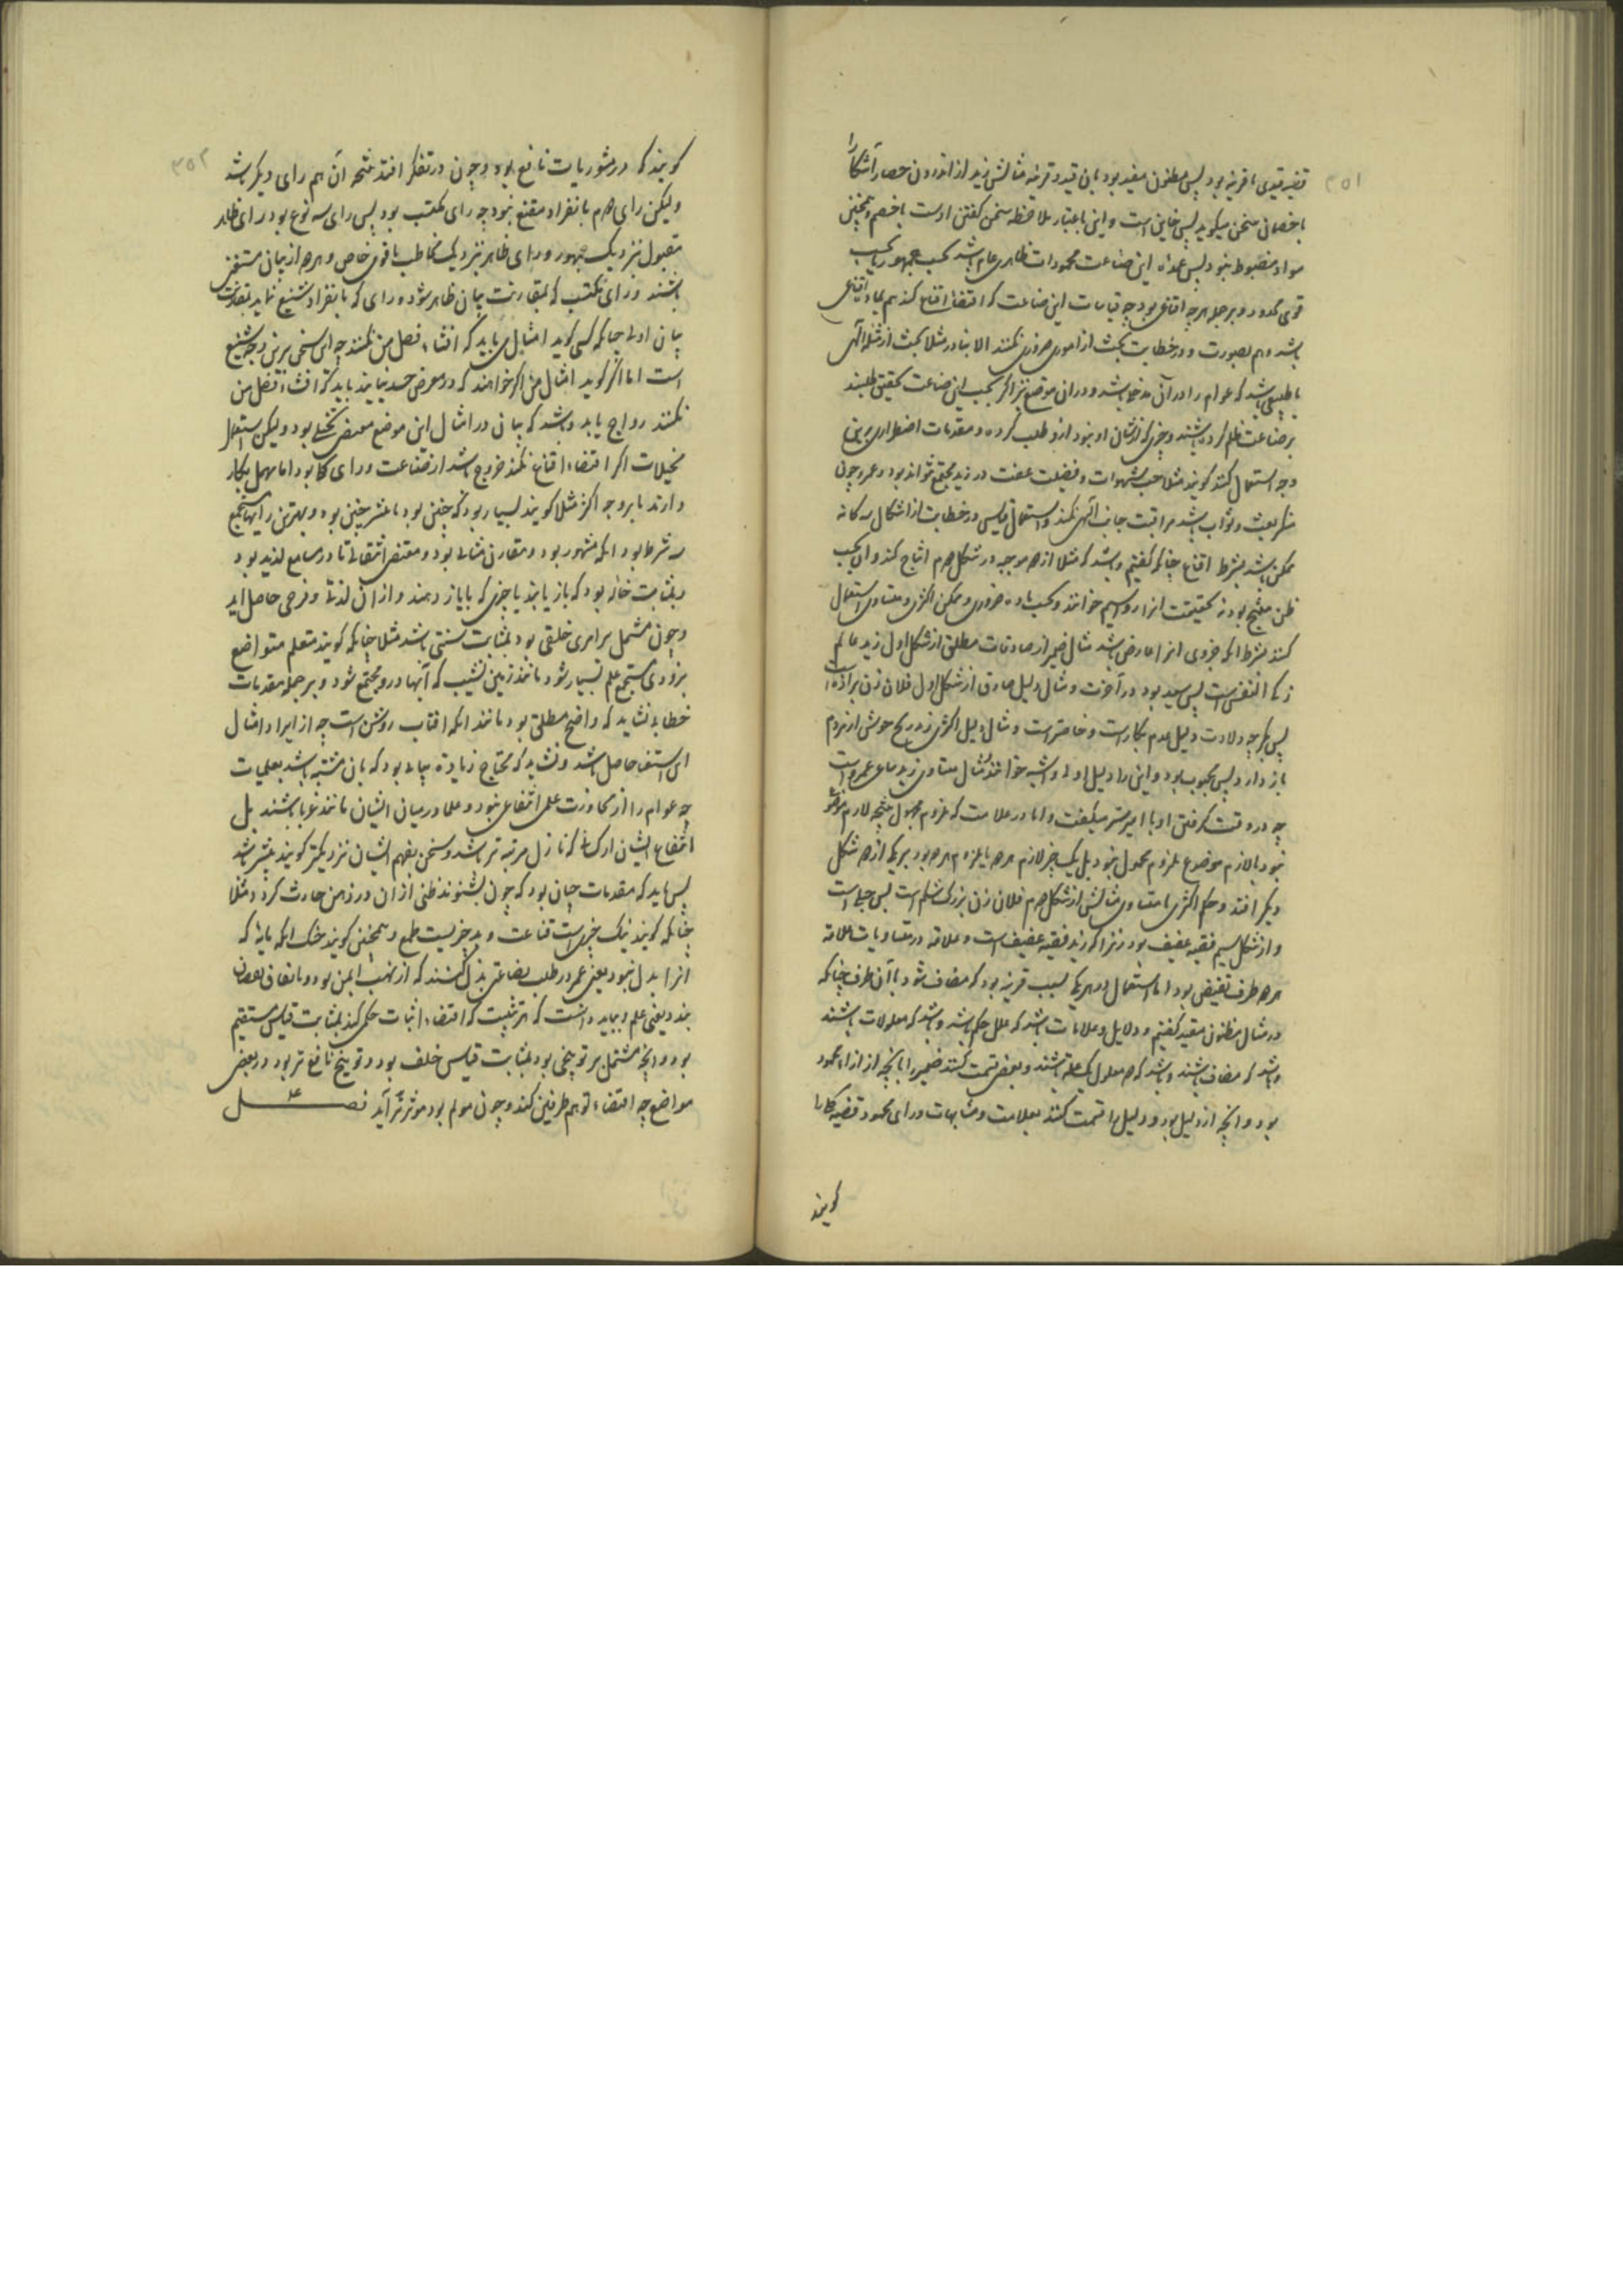 ۳۵۱
قید تعدی با قرینه بود پس مظنون مقید بود بان قید و قرینه مثالش زید از اندرون حصار آشکارا
با خصمان سخن میکوید پس خاین است و این باعتبار ملاحظه سخن کفتن اوست با خصم و همچنین
مواد مضبوط نبود پس عمده این صناعت محمودات ظاهری عام باشد بحسب جمهور یا بحسب
قومی محدود و بر جمله هرچه اقناعی بود چه قیاسات این صناعت که اقتضا اقناع کند هم بماده اقناعی
باشد و هم بصورت و در خطابت بحث از امور ضروری نکنند الا بنادر مثلا بحث از مثله الهی
یا طبیعی باشد که عوام را در آن مدخل باشد و در ان موضع نیز اکر بحسب این صناعت تحقیق طلبند
بر صناعت ظلم کرده باشند و چیزی که از شان او نبود ازو طلب کرده و مقدمات اضطراری برین
وجه استعمال کنند کویند مثلا حب شهوات و فضیلت عفت در زید مجتمع نتواند بود و عمرو چون
شریعت و ثواب باشد مراقبت جانب الهی نکند و استعمال قیاس در خطابت از اشکال سه کانه
ممکن باشد بشرط اقناع چنانکه کفتیم و باشد که مثلا از دو موجبه در شکل دوم انتاج کند و ان بحسب
ظن منتج بود نه بحقیقت انرا رواسیم خوانند و بحسب ماده ضروری و ممکن اکثری و متساوی استعمال
کنند بشرط انکه خردی انرا عارض باشد مثال ضمیر از صادقات مطلق از شکل اول زید عالم
زکی النفس است پس سعید بود در آخرت و مثال دلیل صادق از شکل اول فلان زن بزاده است
پس بکر چه ولادت دلیل عدم بکارت است و خاصتر است و مثال دلیل اکثری زید رنج خویش از مردم
باز دارد پس محبوب بود و این را دلیل اولی و اشبه خوانند مثال متساوی زید ساعی عمرو است
چه در وقت کرفتن او با امیر بسر میکفت و اما در علامت که ملزوم محمول نتیجه لازم موضوع
نبود یا لازم موضوع ملزوم محمول نبود بل یک چیز لازم هر دو یا ملزوم هر دو بود هر یکی از دو شکل
دیکر افتد و حکم اکثری یا متساوی مثالش از شکل دوم فلان زن بزرک شکم است پس حبلی است
و از شکل سیم فقیه عفیف بود زیرا که زید فقیه عفیف است و علاقه در متساویات علاقه
هر دو طرف نقیض بود اما استعمال در هر یکی بسبب قرینه بود که مضاف شود با آن طرف چنانکه
در مثال مظنون مقید کفتیم و دلایل و علامات باشد که علل حکم باشد و باشد که معلولات باشند
و باشد که مضاف باشند و باشد که دو معلول یک علت باشند و بعضی قسمت کنند ضمیر را بانچه از اراء محموده
بود و انچه از دلیل بود و دلیل را قسمت کنند بعلامت و مشابهات و رای محمود قضیه کلی را
کویند
۳۵۲
کویند که در مشوریات نافع بود و چون در تفکر افتد نتیجه آن هم رای دیکر باشد
ولیکن رای دوم بانفراد مقنع نبود چه رای مکتسب بود پس رای سه نوع بود رای ظاهر
مقبول نزدیک جمهور و رای ظاهر نزدیک مخاطب یا قومی خاص و هر دو از بیان مستغنی
باشند و رای مکتسب که بمقارنت بیان ظاهر شود و رای که بانفراد شنیع نماید بمقارنت
بیان اولی چنانکه کسی کوید امثال من باید که اقتناء فضل من نکنند چه این سخن برین وجه شنیع
است اما اکر کوید امثال من اکر خواهند که در معرض حسد نیایند باید که اقتناء فضل من
نکنند رواج یابد و باشد که بیان در امثال این موضع مقتضی تخیلی بود ولیکن استعمال
مخیلات اکر اقتضاء اقناع نکند خروج باشد از صناعت و رای کلی بود اما مهمل بکار
دارند یا بر وجه اکثر مثلا کویند بسیار بود که چنین بود یا بیشتر چنین بود و بهترین رایها مستجمع
سه شرط بود انکه مشهور بود و مقارن مثالی بود و مقتضی انتقالی تا در سامع لذیذ بود
و بمثابت خانه بود که باز یابند یا چیزی که با یاز دهند و از ان لذتی و فرحی حاصل اید
و چون مشتمل بر امری خلقی بود بمثابت سنتی باشد مثلا چنانکه کویند متعلم متواضع
بزودی مستجمع علم بسیار شود مانند زمین نشیب که آبها درو مجتمع شود و بر جمله مقدمات
خطابی نشاید که واضح مطلق بود مانند انکه افتاب روشن است چه از ایراد امثال
این استغنا حاصل باشد و نشاید که محتاج زیاده بیانی بود که بان مشتبه باشد بعلمیات
چه عوام را از محاورت علمی انتفاعی نبود و علما در میان ایشان مانند غربا باشند بل
انتفاع ایشان از کسانی که نازل مرتبه تر باشند و سخن بفهم ایشان نزدیکتر کویند بیشتر باشد
پس باید که مقدمات چنان بود که چون بشنوند ظنی از ان در ذهن حادث کردد مثلا
چنانکه کویند نیک چیزی است قناعت و بد چیزیست طمع و همچنین کویند خنک انکه مایه که
انرا بدل نبود یعنی عمر در طلب بضاعتی بذل کنند که از نهب ایمن بود و بانفاق نقصان
نپذیرد یعنی علم و بباید دانست که هر تثبیت که اقتضاء اثبات حکمی کند بمثابت قیاس مستقیم
بود و انچه مشتمل بر توبیخی بود بمثابت قیاس خلف بود و توبیخ نافع تر بود در بعضی
مواضع چه اقتضاء توهم طرفین کند و چون مولم بود موثرتر آید فصل